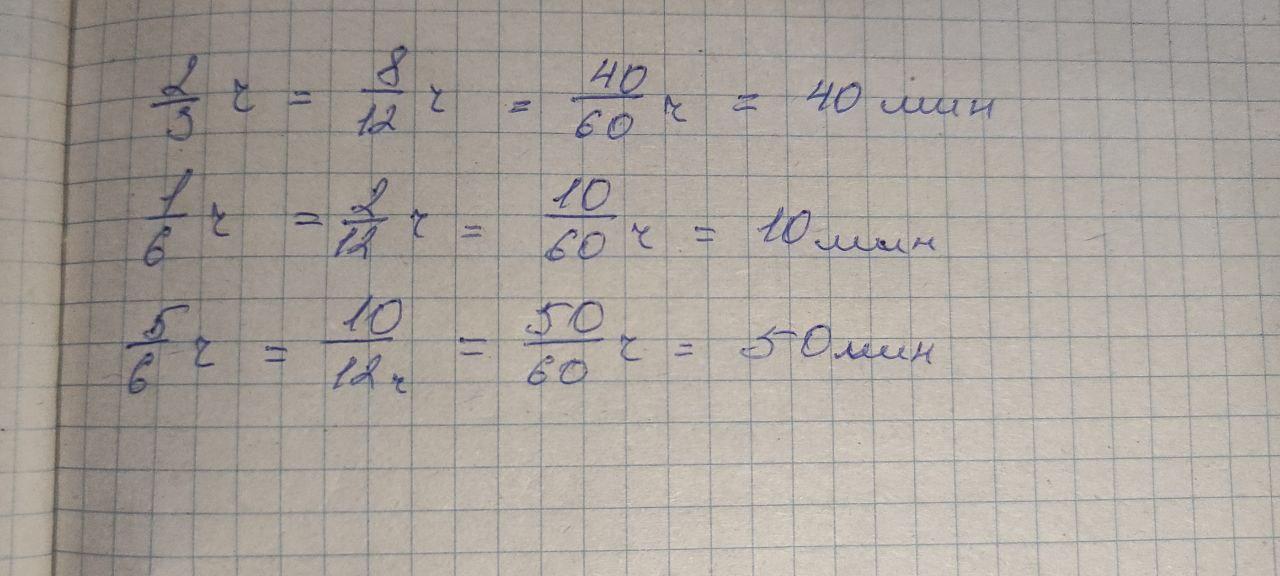 2/3 ч = 8/12 ч = 40/60 ч = 40 мин
1/6 ч = 2/12 ч = 10/60 ч = 10 мин
5/6 ч = 10/12 ч = 50/60 ч = 50 мин